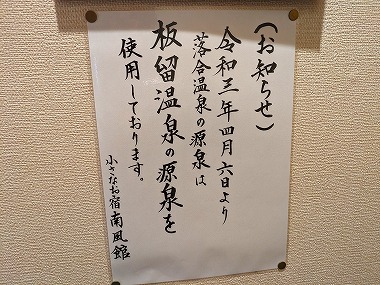 (お知らせ)
令和三年四月六日より
落合温泉の源泉は
板留温泉の源泉を
使用しております。
小さなお宿 南風館